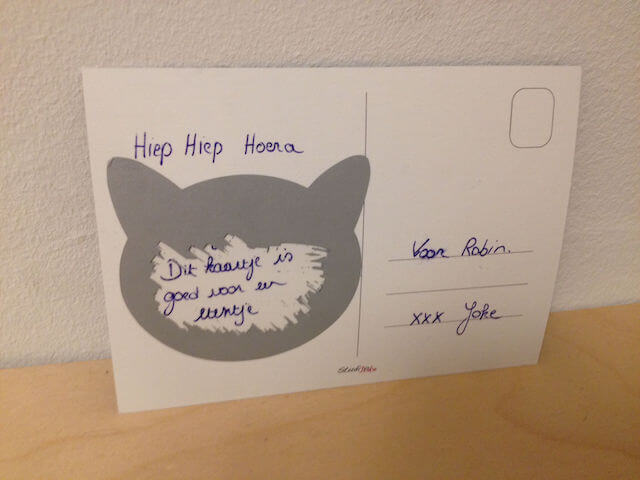 Hiep Hiep Hoera
Dit kaartje is
goed voor een
etentje
Voor Robin.
xxx Joke